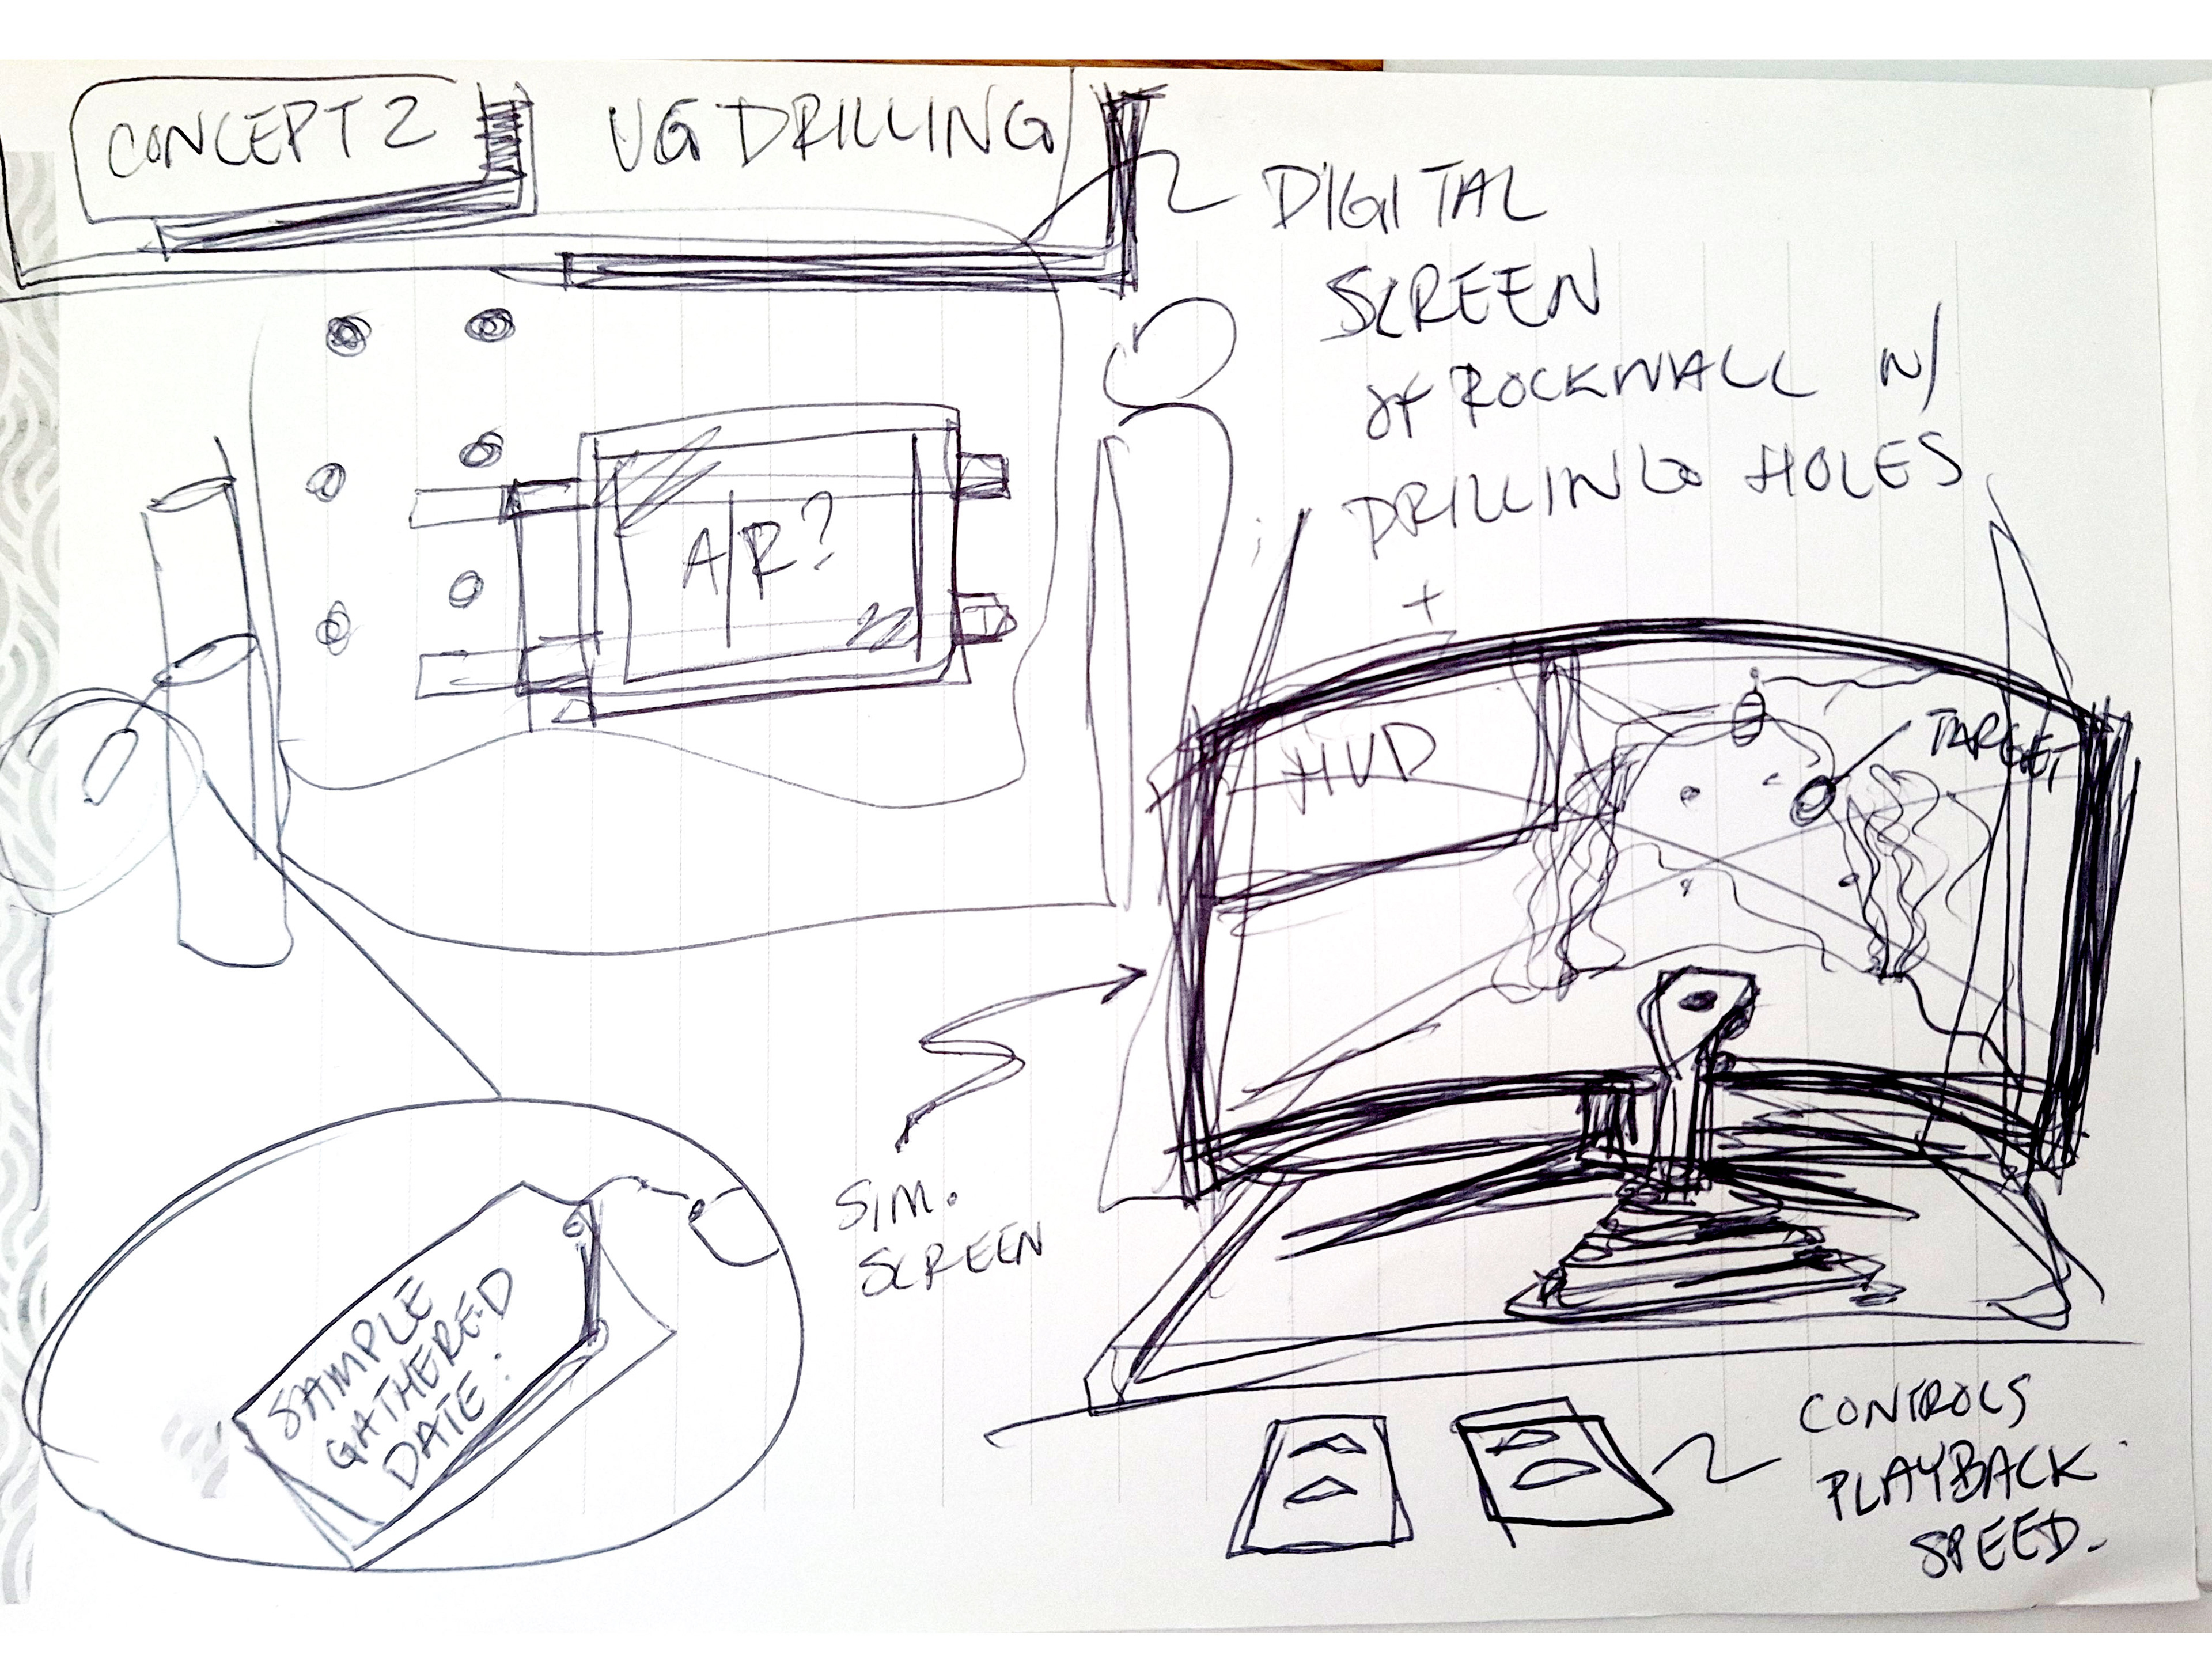 CONCEPT 2
UG DRILLING
DIGITAL
SCREEN
of ROCKWALL W/
DRILLING HOLES
+
A/R?
HUD
TARGET
SIM.
SCREEN
SAMPLE
GATHERED
DATE:
CONTROLS
PLAYBACK
SPEED.